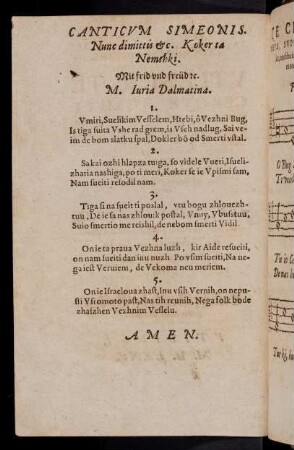 CANTICVM SIMEONIS.
Nunc dimittis &c. Koker ta
Nemshki.
Mit frid vnd freüd ꝛc.
M. Iuria Dalmatina.
1.
V miri, Sueſikim Veſſelem, H tebi, ô Vezhni Bug,
Is tiga ſuita Vshe rad grem, is Vſeh nadlug, Sai ve-
im de bom ſlatku ſpal, Dokler bò od Smerti vſtal.
2.
Sa kai ozhi hlapza tuiga, ſo videle Vueri, Iſueli-
zharia nashiga, po ti meri, Koker ſe ie Vpiſmi ſam,
Nam ſueiti reſodil nam.
3.
Tiga ſi na ſueit ti poslal, vſu bogu zhlouezh-
tuu, De ie ſa nas zhlouk poſtal, V nuy, V buſituu,
Suio ſmertio me reishil, de nebom ſmerti Vidil.
4.
On ie ta praua Vezhna luzh, kir Aide reſueiti,
on nam ſueiti dan inu nuzh Po vſim ſueiti, Na ne-
ga ieſt Veruiem, de Vekoma neu meriem.
5.
On ie Israeloua zhaſt, Inu vſih Vernih, on nepu-
ſti Vſromoto paſt, Nas tih reunih, Nega folk bode
zhaſzhen Vezhnim Veſſelu.
AMEN.